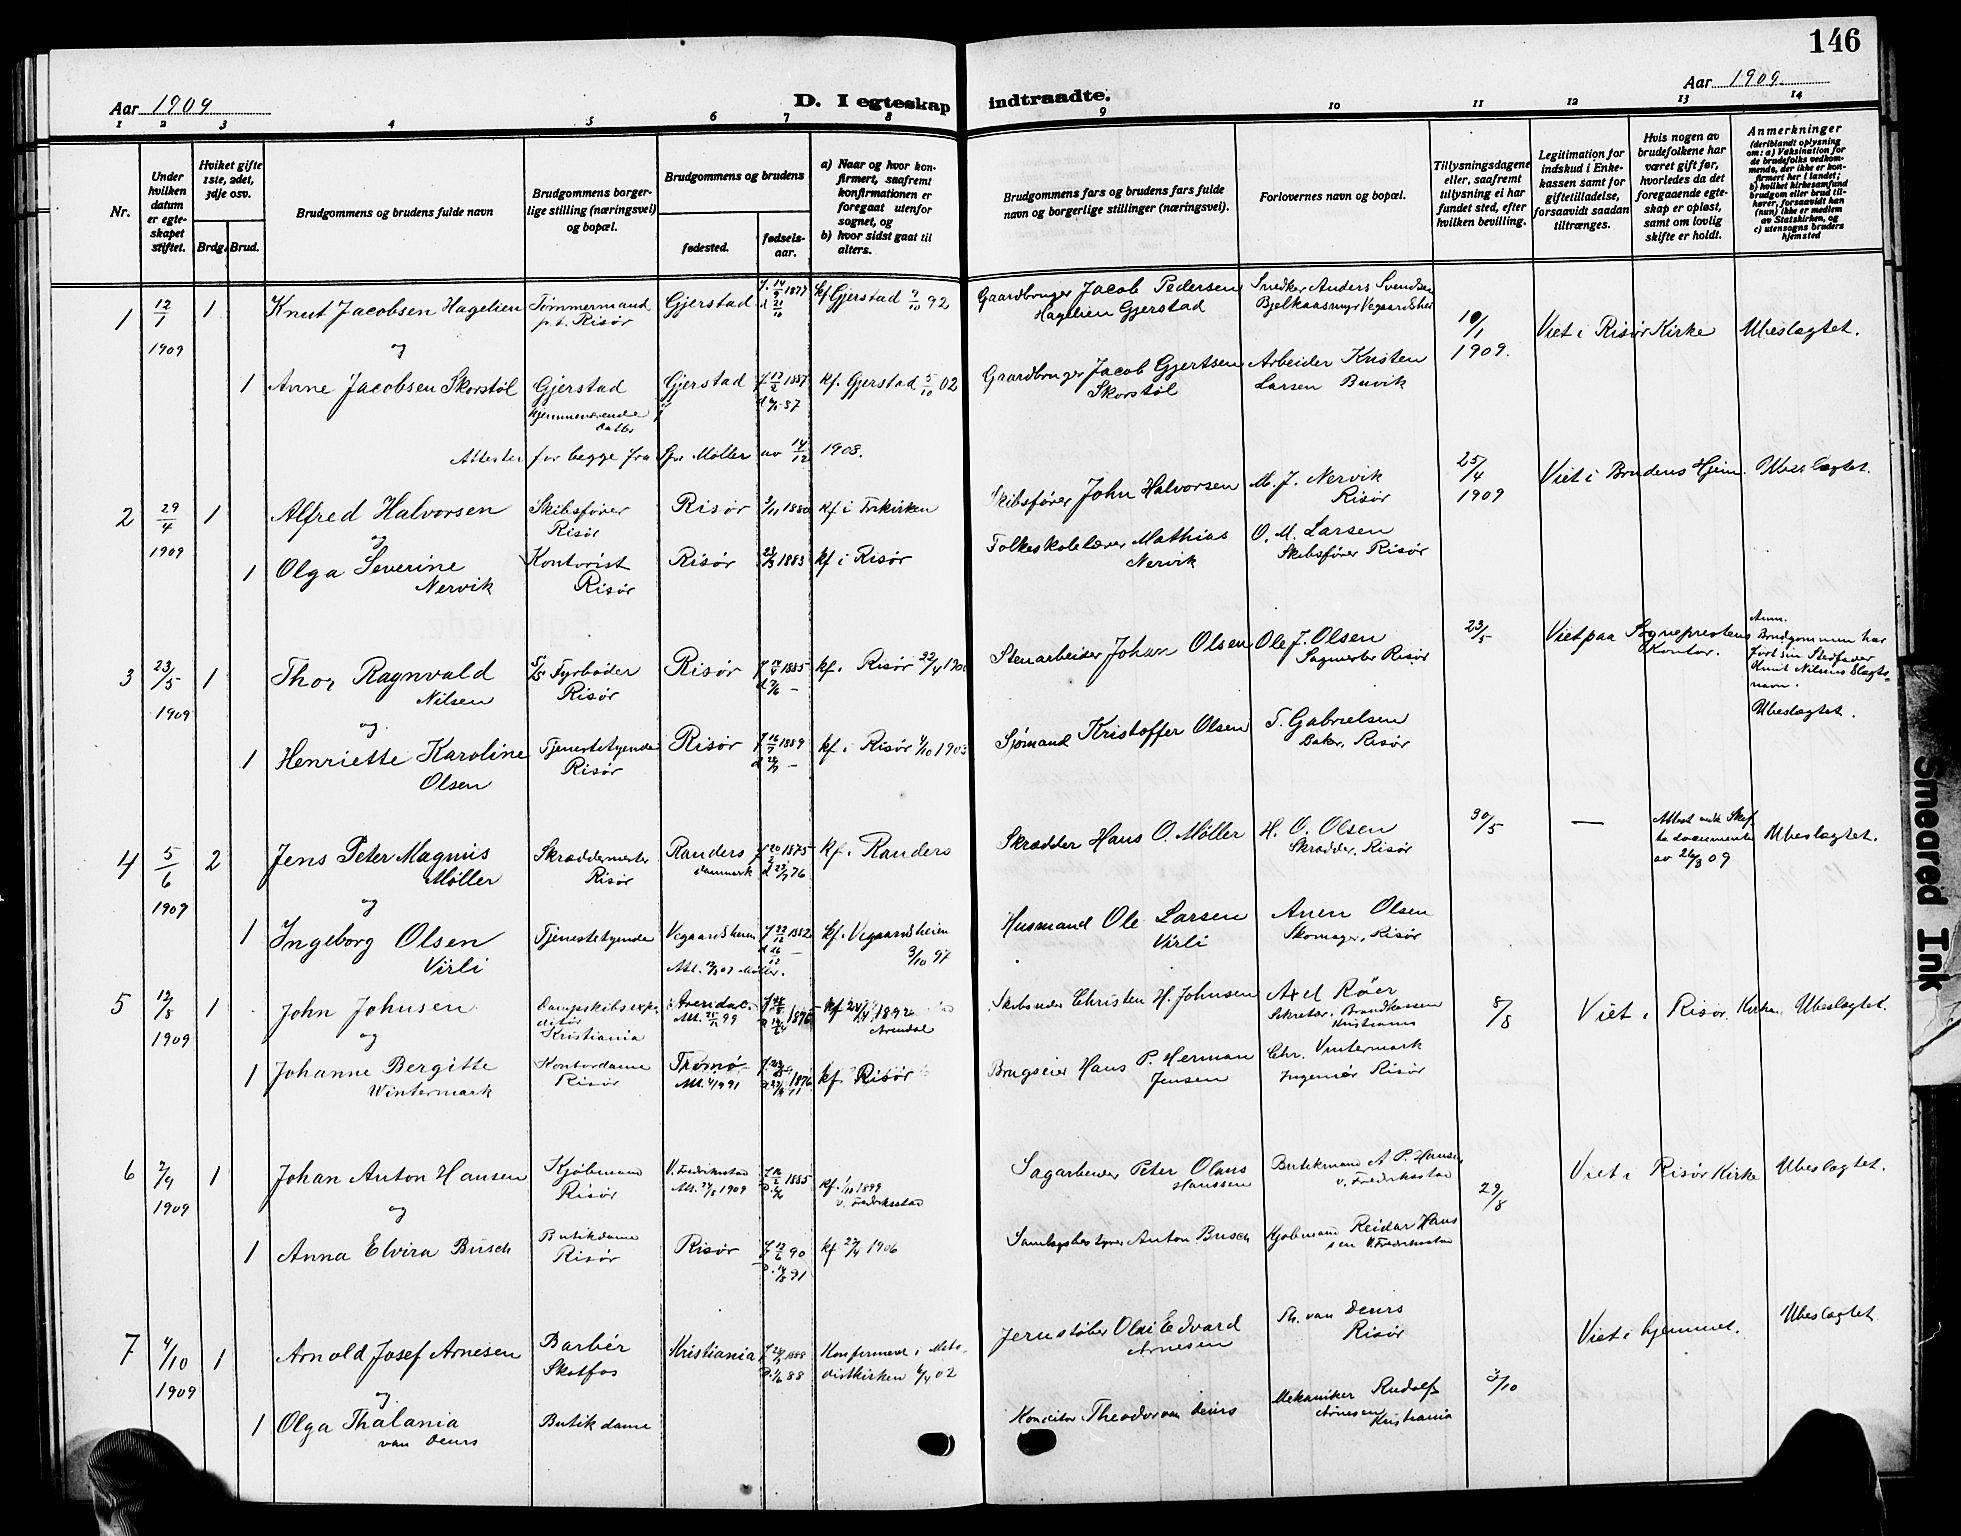 146
Aar 1909
D. I egteskap
indtraadte.
Aar 1909
1 2 3 4 5 6 7 8 9 10 11 12 13 14
Nr.
Under hvilken datum er egteskapet stiftet.
Hviket gifte 1ste, 2det, 3dje osv.
Brdg. Brud.
Brudgommens og brudens fulde navn
Brudgommens borgerlige stilling (næringsvei) og bopæl.
Brudgommens og brudens
fødested.
fødselsaar.
a) Naar og hvor konfirmert, saafremt konfirmationen er foregaat utenfor sognet, og
b) hvor sidst gaat til alters.
Brudgommens fars og brudens fars fulde navn og borgerlige stillinger (næringsvei).
Forlovernes navn og bopæl.
Tillysningsdagene eller, saafremt tillysning ei har fundet sted, efter hvilken bevilling.
Legitimation for indskud i Enkekassen samt for giftetilladelse, forsaavidt saadan tiltrænges.
Hvis nogen av brudefolkene har været gift før, hvorledes da det foregaaende egteskap er opløst, samt om lovlig skifte er holdt.
Anmerkninger (deriblandt oplysning om: a) Vaksination for de brudefolks vedkommende, der ikke er konfirmert her i landet; b) hvilket kirkesamfund brudgom eller brud tilhører, forsaavidt han (hun) ikke er medlem av Statskirken, og c) utensogns bruders hjemsted
1 12/1 1909 1 Knut Jacobsen Hagelien Tømmermand p.t. Risør Gjerstad f. 14/9 1877 d 21/10 kf Gjerstad 2/10 92 Gaardbruger Jacob Pedersen Hagelien Gjerstad Snedker Anders Svendsen 10/1 1909. Viet i Risør Kirke Ubeslægtet.
og
1 Anne Jacobsen Skorstøl Gjerstad Hjemmeværende Datter Gjerstad kf. Gjerstad 5/10 02 Gaardbruger Jacob Gjertsen Skorstøl Arbeider Kristen Larsen Buvik
Attester for begge fra Spr Møller av 14/12 1908.
2 29/4 1909 1 Alfred Halvorsen Skibsfører Risør Risør 1880 kf i Frkirken Skibsfører John Halvorsen M. J. Nervik Risør 25/4 1909 Viet i Brudens Hjem. Ubeslægtet.
og
1 Olga Severine Nervik Kontorist Risør Risør 1883 kf i Risør Folkeskolelærer Mathias Nervik O. M. Larsen Skibsfører Risør
3 23/5 1909 1 Thor Ragnvald Nilsen Fyrbøder Risør Risør 1885 kf. Risør Stenarbeider Johan Olsen Ole J. Olsen Risør 23/5 Viet paa Sogneprestens Kontor. Anm. Brudgommen har ført sin Stedfader Knut Nilsens Slægtsnavn. Ubeslægtet.
og
1 Henriette Karoline Olsen Tjenestetyende Risør Risør 1889 kf i Risør 4/10 1903 Sjømand Kristoffer Olsen T. Gabrielsen Baker, Risør
4 5/6 1909 2 Jens Peter Magnus Møller Skræddermester Risør Randers Danmark 1875 kf. Randers Skrædder Hans O. Møller H. O. Olsen Skrædder, Risør 30/5 — av 26/3 09 Ubeslægtet.
og
1 Ingeborg Olsen Virli Tjenestetyende Vegaardsheien 1882 kf. Vegaardsheien 3/10 97 Husmand Ole Larsen Virli Anen Olsen Skomager, Risør
5 12/8 1909 1 John Johnsen Dampskibsexpeditør Kristiania Arendal kf 24/4 1892 Arendal Christen H. Johnsen Axel Røer Sekretær, Brandkassen Kristiania 8/8 Viet i Risør Kirke Ubeslægtet.
og
1 Johanne Bergitte Wintermark Kontordame Risør Tromø 1876 kf. Risør Brugseier Hans P. Herman Jensen Chr. Vintermark Ingeniør Risør
6 2/9 1909 1 Johan Anton Hansen Kjøbmand Risør V. Fredrikstad 1885 kf. 1/10 1899 v. Fredriksstad Sagarbeider Peter Olaus Hanssen Butikmand A P. Hansen v. Fredriksstad 29/8 Viet i Risør Kirke Ubeslægtet.
og
1 Anna Elvira Busch Butikdame Risør Risør f. 12/6 90 kf 22/4 1906 Samlagsbestyrer Anton Busch Kjøbmand Reidar Hansen V. Fredriksstad
7 4/10 1909 1 Arnold Josef Arnesen Barbér Skotfos Kristiania 1888 Konfirmert i Metodistkirken 6/4 02 Jernstøber Olai Edvard Arnesen Th. van Deurs Risør 3/10 Viet i hjemmet. Ubeslægtet
og
1 Olga Thalania van Deurs Butikdame Konditor Theodor van Deurs Mekaniker Rudolf Arnesen Kristiania
Smeared Ink